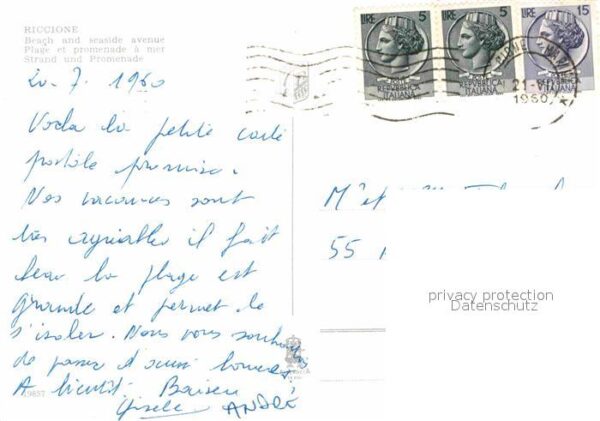 RICCIONE
Beach and seaside avenue
Plage et promenade à mer
Strand und Promenade
20.7.1960
Voila la petite carte
postale promise.
Nos vacances sont
très agréables il fait
beau la plage est
grande et permet de
s'isoler. Nous vous souhaitons
de passer d'aussi bonnes
A bientôt. Baisers
Gisèle ANDRÉ
19857
LIRE 5
REPUBBLICA
ITALIANA
LIRE 5
REPUBBLICA
ITALIANA
LIRE 15
REPUBBLICA
ITALIANA
1960
M' et
55
privacy protection
Datenschutz